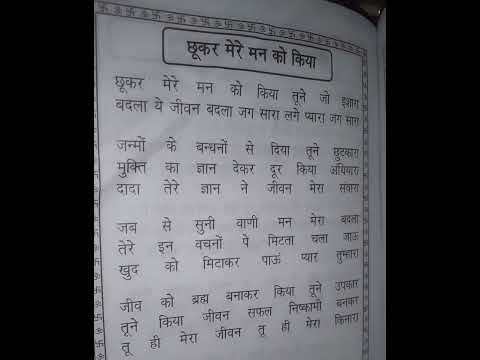 छूकर मेरे मन को किया
छूकर मेरे मन को किया तूने जो इशारा
बदला ये जीवन बदला जग सारा लगे प्यारा जग सारा
जन्मों के बन्धनों से दिया तूने छुटकारा
मुक्ति का ज्ञान देकर दूर किया अंधियारा
दादा तेरे ज्ञान ने जीवन मेरा संवारा
जब से सुनी वाणी मन मेरा बदला
तेरे इन वचनों पे मिटता चला जाऊं
खुद को मिटाकर पाऊं प्यार तुम्हारा
जीव को ब्रह्म बनाकर किया तूने उपकार
तूने किया जीवन सफल निष्कामी बनकर
तू ही मेरा जीवन तू ही मेरा किनारा